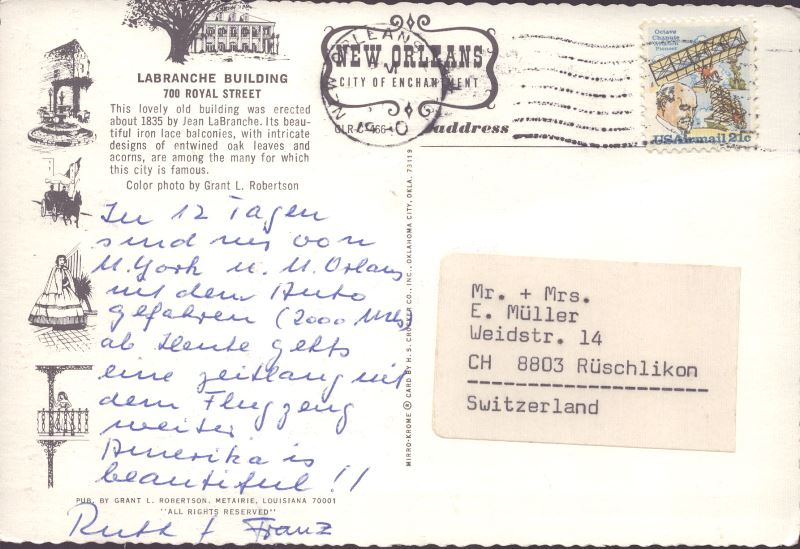 LABRANCHE BUILDING
700 ROYAL STREET
This lovely old building was erected
about 1835 by Jean LaBranche. Its beau-
tiful iron lace balconies, with intricate
designs of entwined oak leaves and
acorns, are among the many for which
this city is famous.
Color photo by Grant L. Robertson
In 12 Tagen
sind wir von
N. York n. N. Orleans
mit dem Auto
gefahren (2000 Mls)
ab Heute gehts
eine zeitlang mit
dem Flugzeug
weiter
Amerika is
beautiful!!
PUB. BY GRANT L. ROBERTSON, METAIRIE, LOUISIANA 70001
"ALL RIGHTS RESERVED"
Ruth + Franz
MIRRO-KROME ® CARD BY H. S. CROCKER CO., INC., OKLAHOMA CITY, OKLA. 73119
NEW ORLEANS
CITY OF ENCHANTMENT
NEW ORLEANS
address
Octave
Chanute
Aviation
Pioneer
USAirmail 21c
Mr. + Mrs.
E. Müller
Weidstr. 14
CH 8803 Rüschlikon
Switzerland